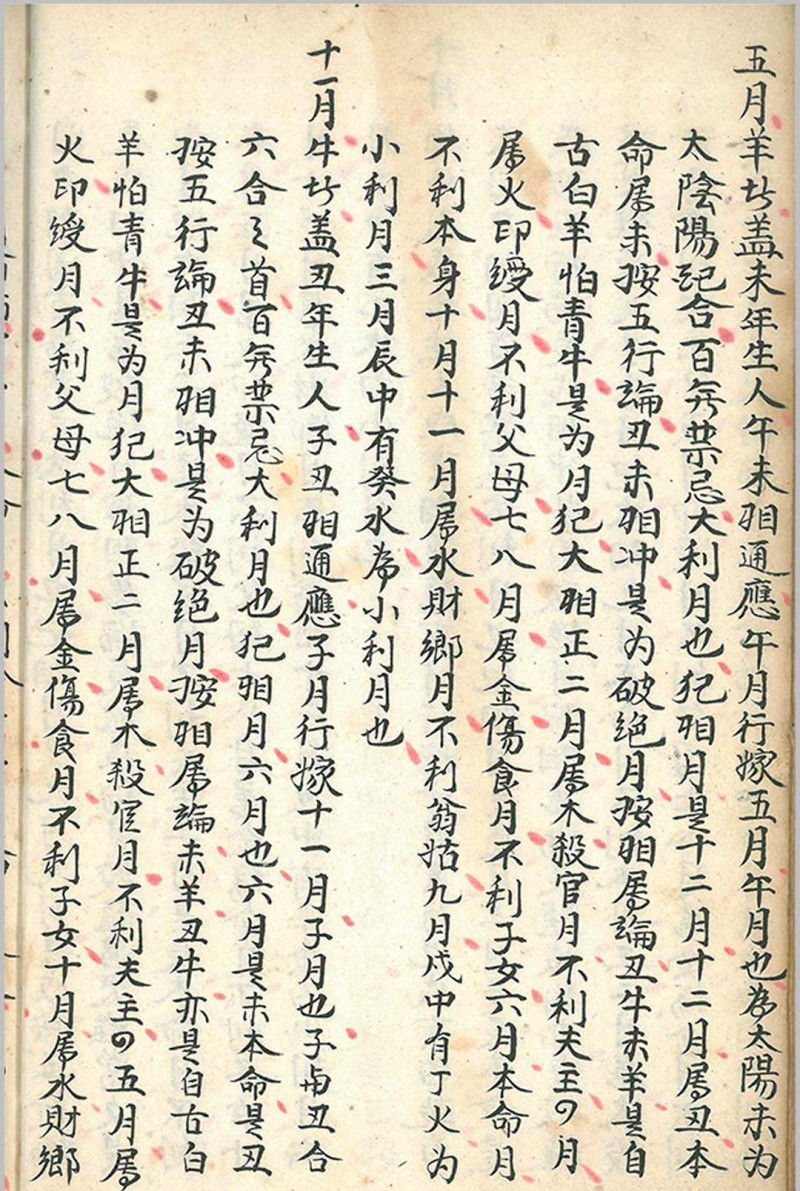 五月羊女盖未年生人午未相通應午月行嫁五月午月也為太陽未为
太陰陽犯合百無禁忌大利月也犯相月是十二月十二月属丑本
命属未按五行論丑未相冲是为破绝月按相属論丑牛未羊是自
古白羊怕青牛是为月犯大相正二月属木殺官月不利夫主の月
属火印綬月不利父母七八月属金傷食月不利子女六月本命月
不利本身十月十一月属水財鄉月不利翁姑九月戌中有丁火为
小利月三月辰中有癸水為小利月也
十一月牛女盖丑年生人子丑相通應子月行嫁十一月子月也子与丑合
六合之首百無禁忌大利月也犯相月六月也六月是未本命是丑
按五行論丑未相冲是为破绝月按相属論未羊丑牛亦是自古白
羊怕青牛是为月犯大相正二月属木殺官月不利夫主の五月属
火印綬月不利父母七八月属金傷食月不利子女十月属水財鄉